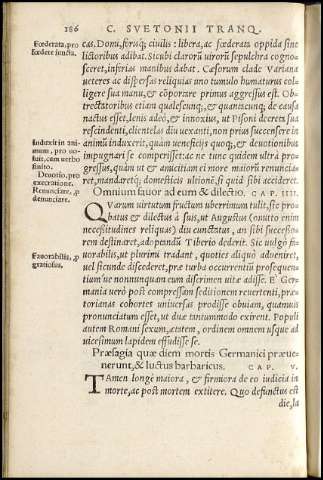 186 C. SVETONII TRANQ.
Fœderata, pro
fœdere iuncta.
cas. Domi, forisq; ciuilis : libera, ac fœderata oppida sine
lictoribus adibat. Sicubi clarorū uirorū sepulchra cogno-
sceret, inferias manibus dabat. Cæsorum clade Variana
ueteres ac dispersas reliquias uno tumulo humaturus col-
ligere sua manu, & cōportare primus aggressus est. Ob-
trectatoribus etiam qualescunq;, & quantacunq; de causa
nactus esset, lenis adeò, & innoxius, ut Pisoni decreta sua
rescindenti, clientelas diu uexanti, non prius succensere in
Induxit in ani-
mum, pro uo-
luit, cum uerbo
finito.
Deuotio, pro
execratione.
Renunciare, p
denunciare.
animū induxerit, quàm ueneficijs quoq;, & deuotionibus
impugnari se comperisset: ac ne tunc quidem ultrà pro-
gressus, quàm ut & amicitiam ei more maiorū renunciaret,
mandaretq; domesticis ultionē, si quid sibi accideret.
Omnium fauor ad eum & dilectio. CAP. IIII.
QVarum uirtutum fructum uberrimum tulit, sic pro-
batus & dilectus à suis, ut Augustus (omitto enim
necessitudines reliquas) diu cunctatus, an sibi successo-
rem destinaret, adoptandū Tiberio dederit. Sic uulgò fa-
Fauorabilis, p
gratiosus.
uorabilis, ut plurimi tradant, quoties aliquò adueniret,
uel sicunde discederet, præ turba occurrentiū prosequen-
tium'ue nonnunquam eum discrimen uitæ adisse. E' Ger-
mania uerò post compressam seditionem reuertenti, præ-
torianas cohortes uniuersas prodisse obuiam, quamuis
pronunciatum esset, ut duæ tantummodo exirent. Populi
autem Romani sexum, ætatem, ordinem omnem usque ad
uicesimum lapidem effudisse se.
Præsagia quæ diem mortis Germanici præue-
nerunt, & luctus barbaricus. CAP. V.
TAmen longè maiora, & firmiora de eo iudicia in
morte, ac post mortem extitere. Quo defunctus est
die, la